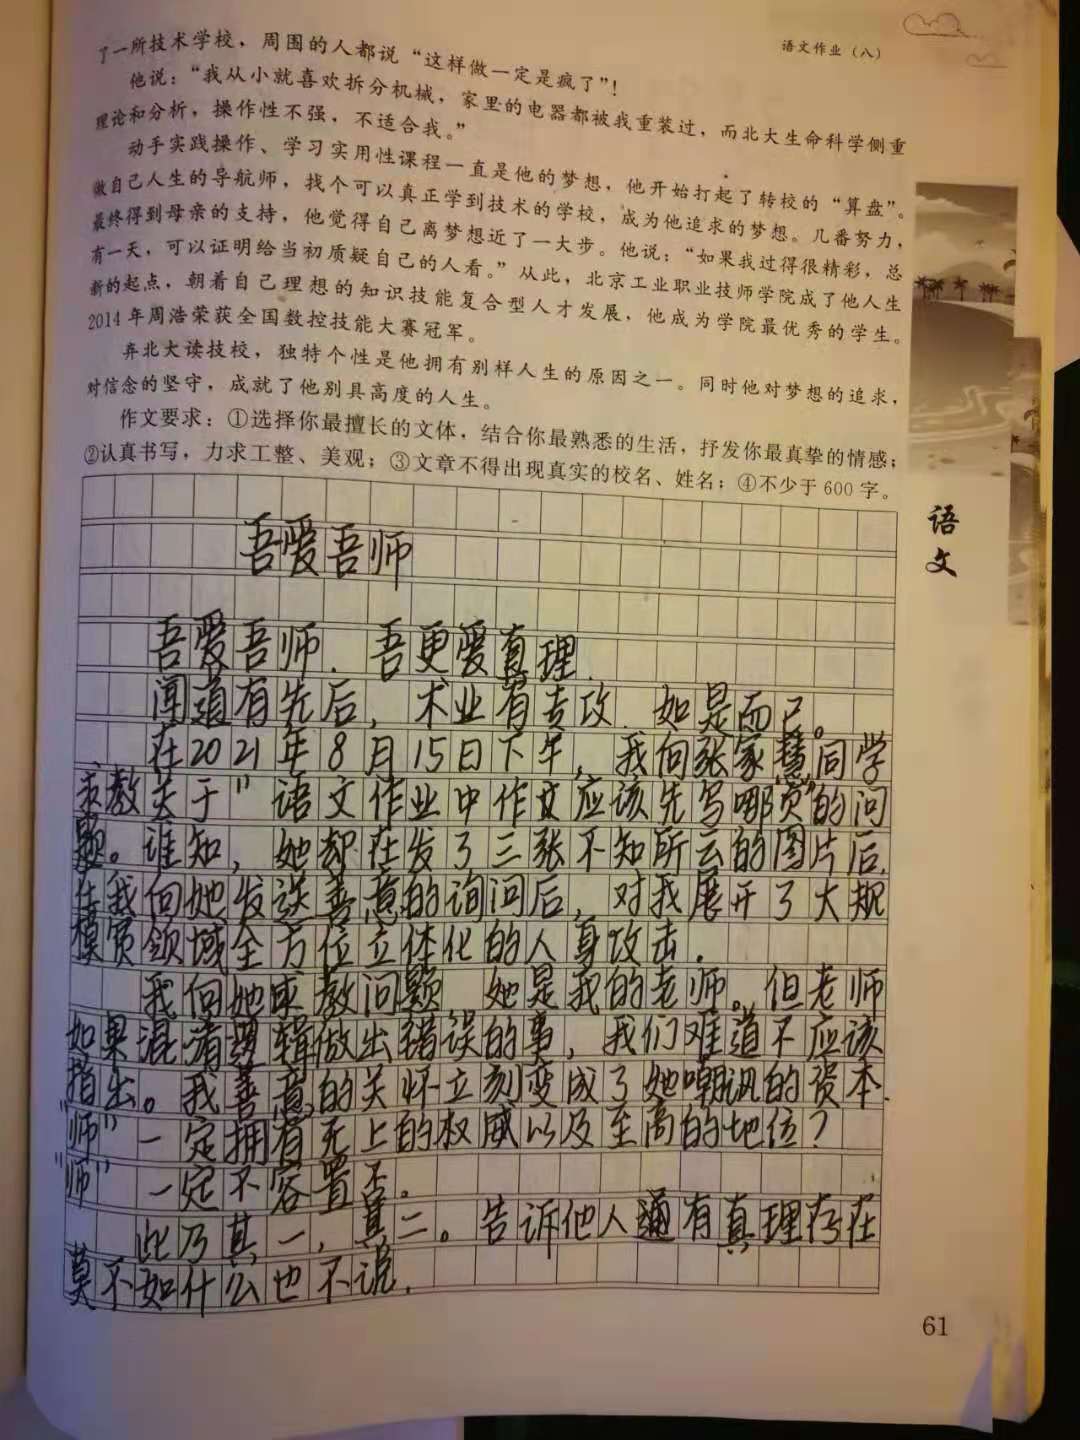 语文作业（八）
了一所技术学校，周围的人都说“这样做一定是疯了”！
他说：“我从小就喜欢拆分机械，家里的电器都被我重装过，而北大生命科学侧重
理论和分析，操作性不强，不适合我。”
动手实践操作、学习实用性课程一直是他的梦想，他开始打起了转校的“算盘”。
做自己人生的导航师，找个可以真正学到技术的学校，成为他追求的梦想。几番努力，
最终得到母亲的支持，他觉得自己离梦想近了一大步。他说：“如果我过得很精彩，总
有一天，可以证明给当初质疑自己的人看。”从此，北京工业职业技师学院成了他人生
新的起点，朝着自己理想的知识技能复合型人才发展，他成为学院最优秀的学生。
2014年周浩荣获全国数控技能大赛冠军。
弃北大读技校，独特个性是他拥有别样人生的原因之一。同时他对梦想的追求，
对信念的坚守，成就了他别具高度的人生。
作文要求：①选择你最擅长的文体，结合你最熟悉的生活，抒发你最真挚的情感；
②认真书写，力求工整、美观；③文章不得出现真实的校名、姓名；④不少于600字。
吾爱吾师
吾爱吾师，吾更爱真理.
闻道有先后，术业有专攻.如是而已。
在2021年8月15日下午，我向张家慧同学
求教关于“语文作业中作文应该先写哪页”的问
题。谁知，她却在发了三张不知所云的图片后.
在我向她发送善意的询问后，对我展开了大规
模宽领域全方位立体化的人身攻击.
我向她求教问题 她是我的老师。但老师
如果混淆逻辑做出错误的事，我们难道不应该
指出。我善意的关怀立刻变成了她嘲讽的资本.
“师”一定拥有无上的权威以及至高的地位？
“师”一定不容置否。
此乃其一，其二。告诉他人通有真理存在
莫不如什么也不说.
语文
61